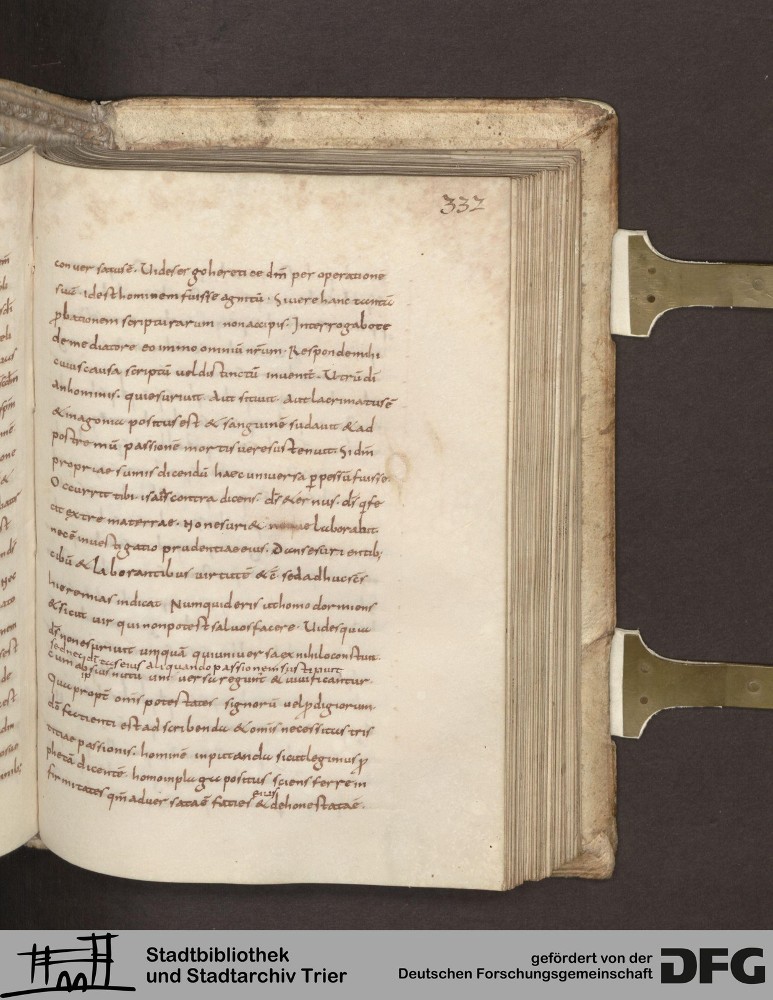 332
conuersatus ē. Uides ergo heretice dm̄ per operatione
suā. idest hominem fuisse agnitū. Si uere hanc tantū
ꝓbationem scripturarum non accipis. Interrogabo te
de mediatore eo immo omniū nr̄um. Respondem
cuius causa scriptū uel distinctū inuenit. Utrū dī
an hominis. qui esuriuit Aut sitiuit Aut lacrimatus ē
& in agonia positus est & sanguinē sudauit & ad
postremū passionē mortis uere sustenuit. Si dm̄
propriae sumis dicendū haec uniuersa ꝑpessū fuisse.
Occurrit tibi. isaias contra dicens. ds̄ &ernus. ds̄ q fe
cit extrema terrae. Non esuri& neque laborabit.
nec ē inuestigatio prudentiae eius. Dans esurientib;
cibū & laborantibus uirtutē & c̄. sed ad huc ses
hieremias indicat Numquid eris ut homo dormiens
& sicut uir qui non potest saluos facere. Uides quia
ds̄ non esuriuit umquā qui uniuersa ex nihilo constitu
sed nec ds̄ eius aliquando passionem sustinuit
cum ab ipsius nutu uniuersa regunt & uiuificantur.
Qua propt̄ om̄is potestates signorū uel ꝓdigiorum
dō facienti est ad scribenda & om̄is necessitas tris
titiae passionis. hominē inputanda sicut legimus ꝓ
ph&ā dicentē. homo in plaga positus sciens ferre in
firmitates qm̄ aduersata ē facies eius & dehonestata ē.
Stadtbibliothek
und Stadtarchiv Trier
gefördert von der
Deutschen Forschungsgemeinschaft
DFG